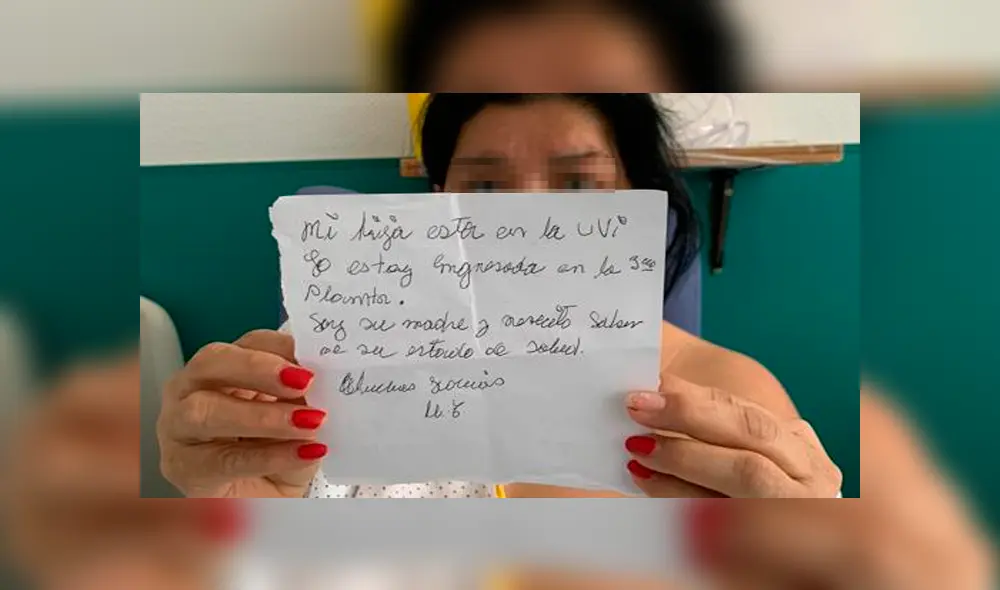 Mi hija está en la UVi
Yo estoy Ingresada en la 3era
Planta.
Soy su madre y necesito Saber
de su estado de salud.
Muchas gracias